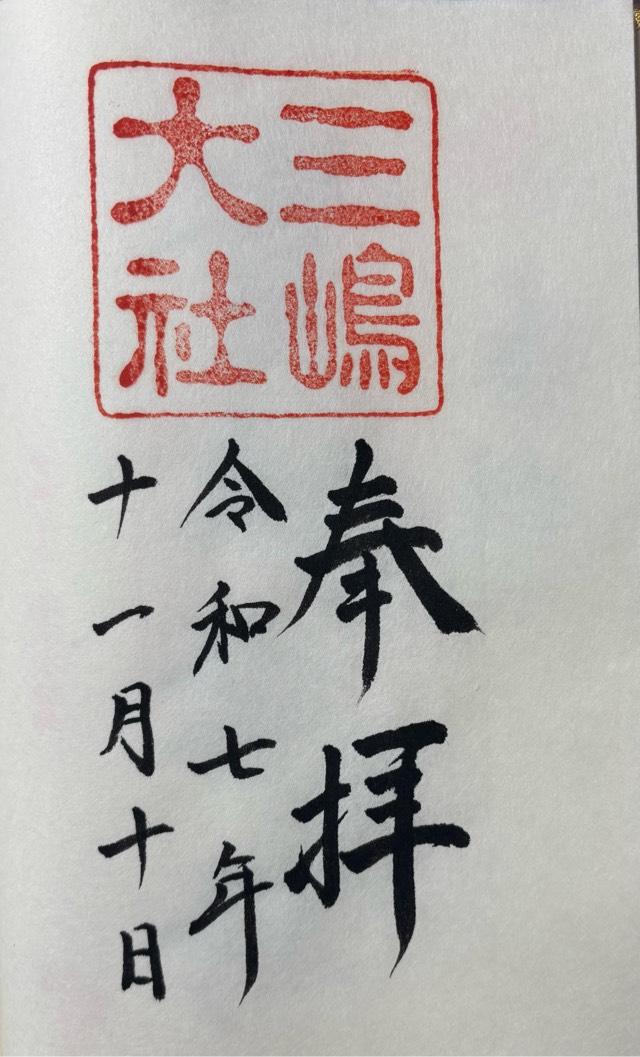 三嶋
大社
奉拝
令和七年
十一月十日